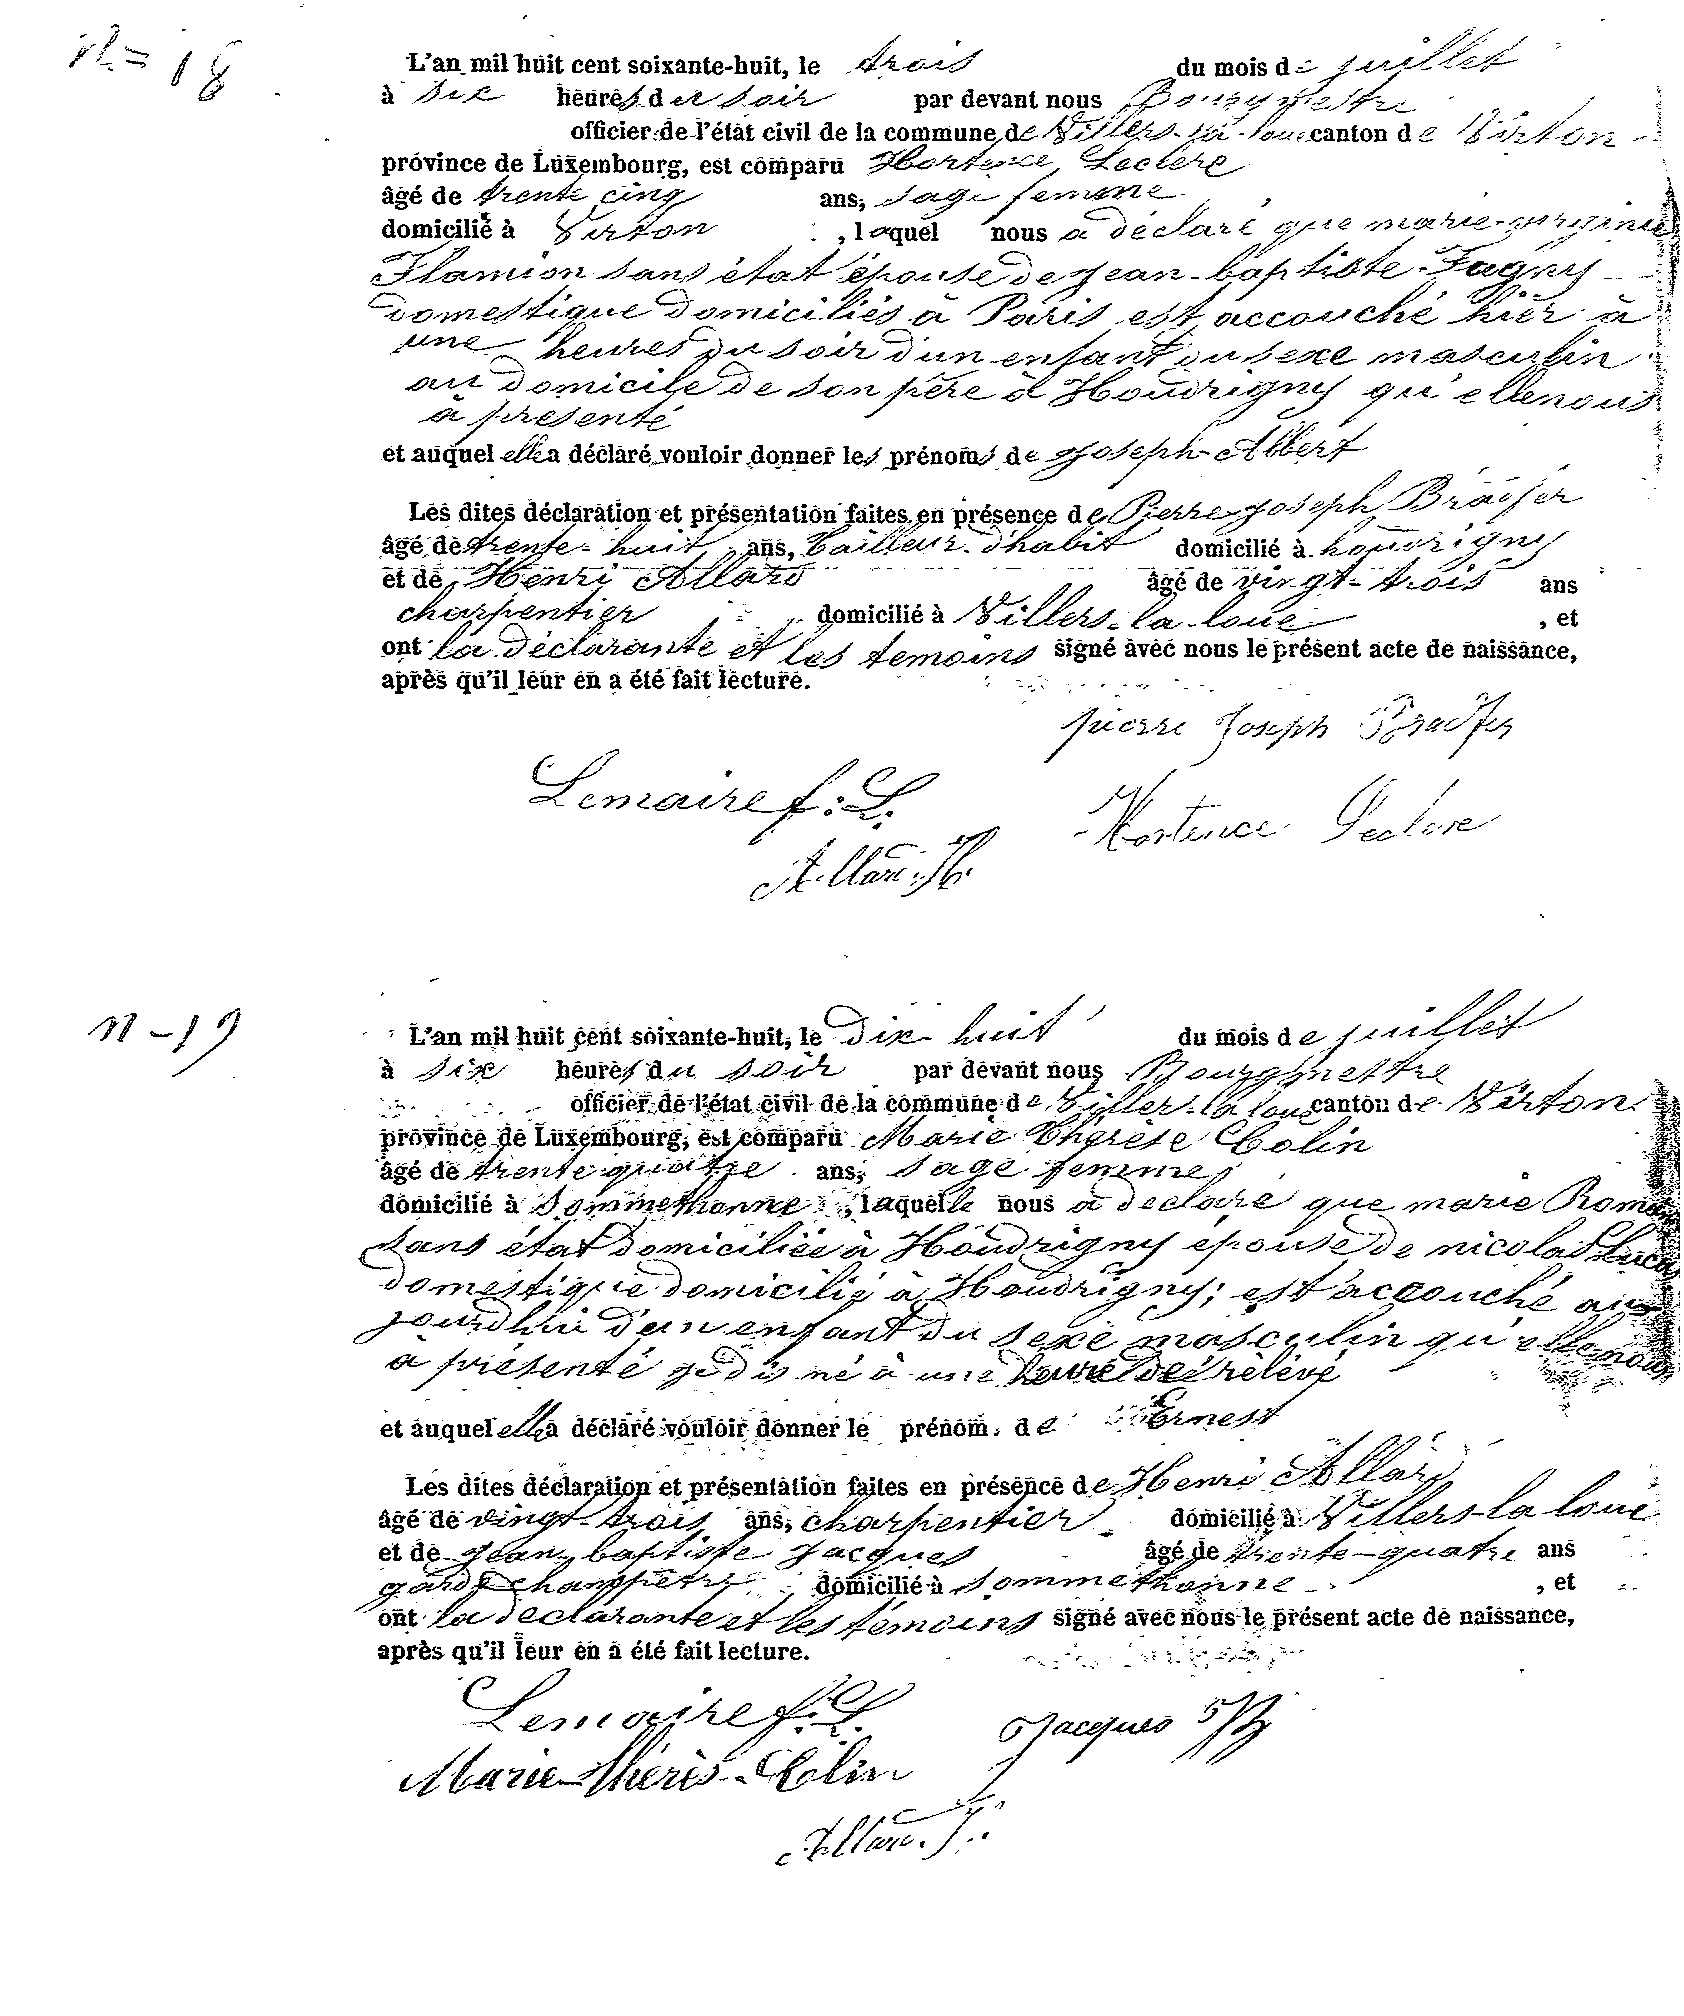 n= 18
L'an mil huit cent soixante-huit, le trois du mois de juillet
à six heures du soir par devant nous Bourgmestre
officier de l'état civil de la commune de Villers-la-loue canton de Virton
province de Luxembourg, est comparu Hortence Leclere
âgé de trente cinq ans, sage femme
domicilié à Virton , laquel nous a déclaré que marie-virginie
Flamion sans état épouse de Jean-baptiste Fagny
domestique domiciliés à Paris est accouché hier à
une heures du soir d'un enfant du sexe masculin
au domicile de son père à Houdrigny qu'elle nous
à presenté
et auquel elle a déclaré vouloir donner les prénoms de Joseph-Albert
Les dites déclaration et présentation faites en présence de Pierre Joseph Bradfer
âgé de trente-huit ans, tailleur d'habit domicilié à houdrigny
et de Henri Allard âgé de vingt-trois ans
charpentier domicilié à Villers-la-loue , et
ont la déclarante et les temoins signé avec nous le présent acte de naissance,
après qu'il leur en a été fait lecture.
pierre Joseph Bradfer
Lemaire f: L.
Hortence Leclere
Allard. H.
n-19
L'an mil huit cent soixante-huit, le Dix huit du mois de juillet
à six heures du soir par devant nous Bourgmestre
officier de l'état civil de la commune de Villers-la loue canton de Virton
province de Luxembourg, est comparu Marie Thérèse Colin
âgé de trente quatre ans, sage femme
domicilié à Sommethonne , laquelle nous a declaré que marie
sans état domiciliée à Houdrigny épouse de nicolas Lucas
domestique domicilié à Houdrigny; est accouché au
jourdhui d'un enfant du sexe masculin qu'elle nous
à présenté né à une heure de rélévé
et auquel elle a déclaré vouloir donner le prénom de Ernest
Les dites déclaration et présentation faites en présence de Henri Allard
âgé de vingt-trois ans, charpentier domicilié à Villers-la loue
et de Jean-baptiste Jacques âgé de trente-quatre ans
garde champêtre domicilié à Sommethonne , et
ont la declarante et les témoins signé avec nous le présent acte de naissance,
après qu'il leur en a été fait lecture.
Lemaire f. L.
Jacques
Marie-thérès-Colin
Allard.